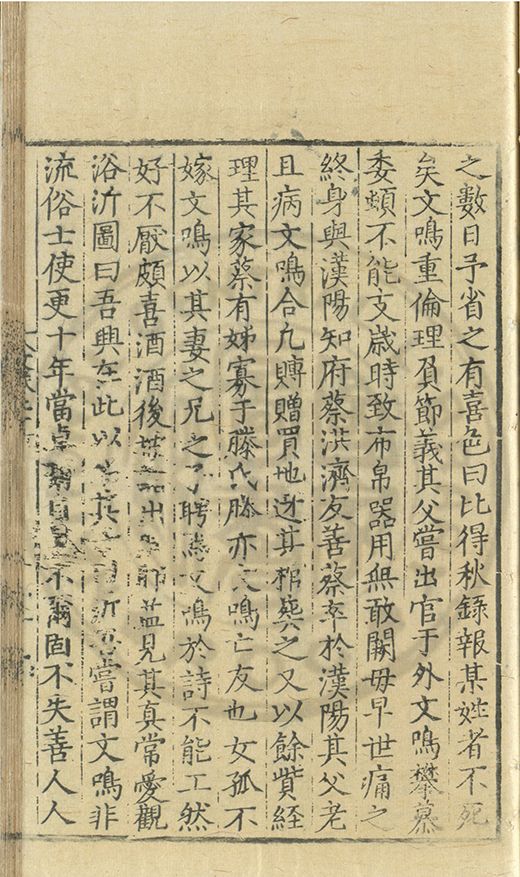 之數日予省之有喜色曰比得秋錄報某姓者不死
矣文鳴重倫理負節義其父嘗出官于外文鳴攀慕
委頓不能支歲時致布帛器用無敢闕毋早世痛之
終身與漢陽知府蔡洪濟友善蔡卒於漢陽其父老
且病文鳴合凡賻贈買地迓其柩葬之又以餘貲經
理其家蔡有姊寡于滕氏滕亦文鳴亡友也女孤不
嫁文鳴以其妻之兄之子聘焉文鳴於詩不能工然
好不厭頗喜酒酒後 出 益見其真常愛觀
浴沂圖曰吾興在此以 嘗謂文鳴非
流俗士使更十年當 不爾固不失善人人